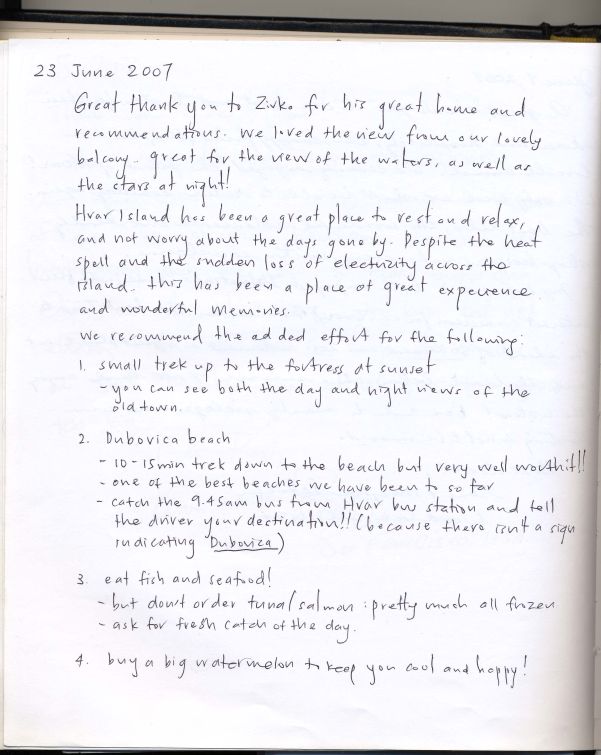 23 June 2007
Great thank you to Zivko for his great home and
recommendations. We loved the view from our lovely
balcony.. great for the view of the waters, as well as
the stars at night!
Hvar Island has been a great place to rest and relax,
and not worry about the days gone by. Despite the heat
spell and the sudden loss of electricity across the
island.. this has been a place of great experience
and wonderful memories.
We recommend the added effort for the following:
1. small trek up to the fortress at sunset
- you can see both the day and night views of the
old town.
2. Dubovica beach
- 10-15min trek down to the beach but very well worth it!!
- one of the best beaches we have been to so far
- catch the 9.45am bus from Hvar bus station and tell
the driver your destination!! (because there isn't a sign
indicating Dubovica)
3. eat fish and seafood!
- but don't order tuna/salmon : pretty much all frozen
- ask for fresh catch of the day.
4. buy a big watermelon to keep you cool and happy!